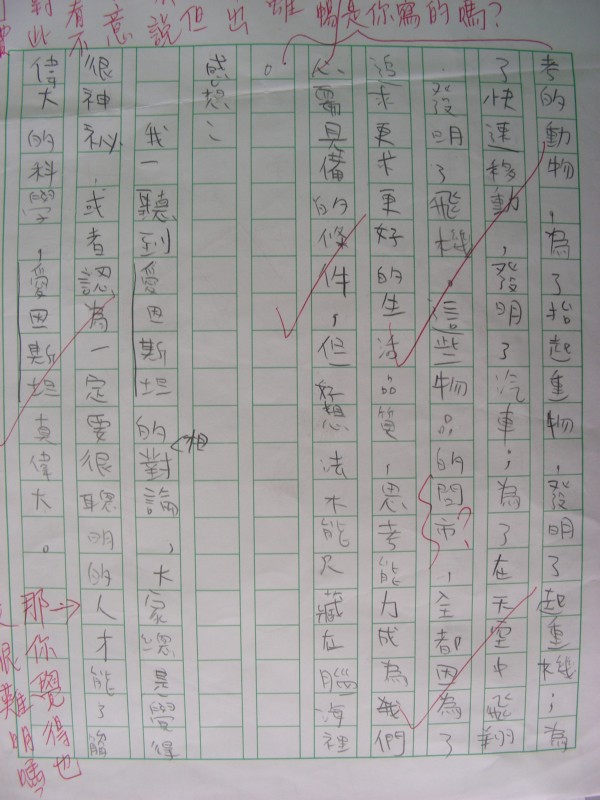 看
不
意
說
但
出
暢是你寫的嗎?
考的動物,為了抬起重物,發明了起重機;為
了快速移動,發明了汽車;為了在天空中飛翔
,發明了飛機。這些物品的問市?,全都因為了
追求更求更好的生活品質,思考能力成為我們
心靈具備的條件,但好想法不能只藏在腦海裡
。
感想:
我一聽到愛因斯坦的相對論,大家總是覺得
很神祕,或者認為一定要很聰明的人才能了解
偉大的科學,愛因斯坦真偉大。
那你覺得也
很難
嗎